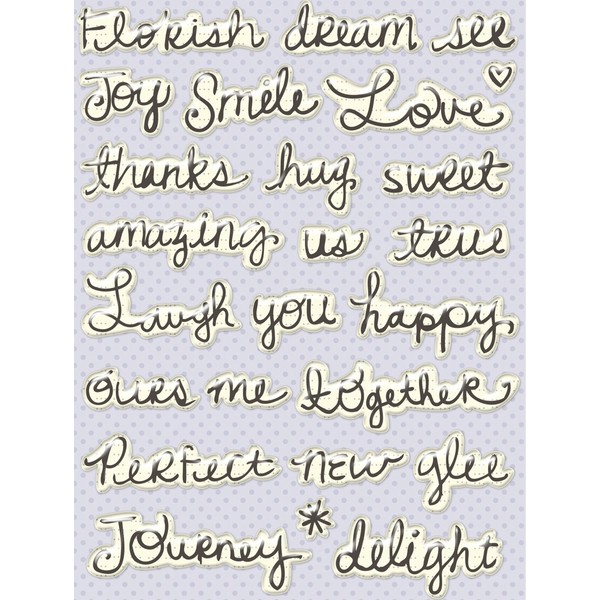 Florish dream see
Joy Smile Love
thanks hug sweet
amazing us true
Laugh you happy
ours me together
Perfect new glee
Journey delight